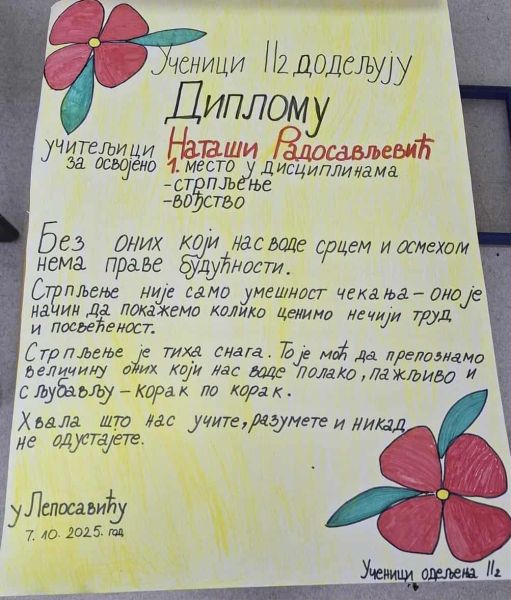 Ученици II2 додељују
Диплому
учитељици Наташи Радосављевић
за освојено 1. место у дисциплинама
-стрпљење
-вођство
Без оних који нас воде срцем и осмехом
нема праве будућности.
Стрпљење није само умешност чекања – оно је
начин да покажемо колико ценимо нечији труд
и посвећеност.
Стрпљење је тиха снага. То је моћ да препознамо
величину оних који нас воде полако, пажљиво и
с љубављу – корак по корак.
Хвала што нас учите, разумете и никад
не одустајете.
у Лепосавићу
7. 10. 2025. год
Ученици одељења II2